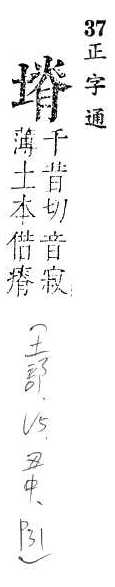 37正字通
塉
千昔切音寂
薄土本借瘠
(土部.15.丑中.P31)